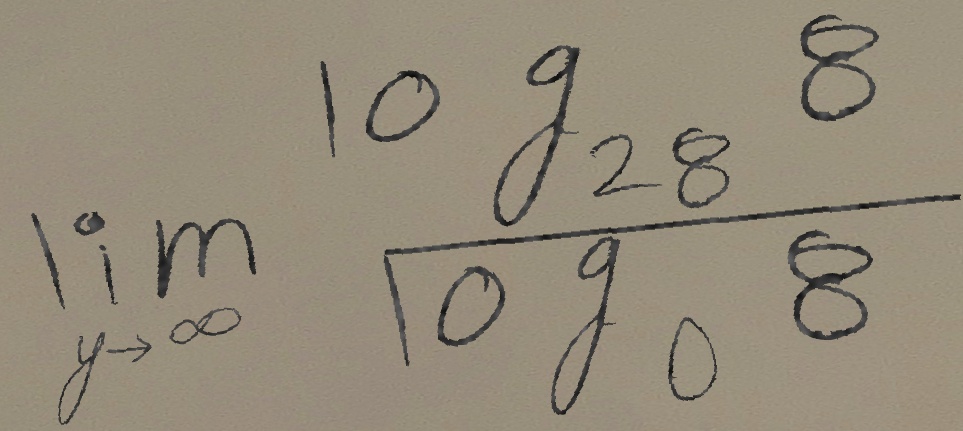 \lim_{y \to \infty} \frac{\log_{28} 8}{\log_{0} 8}